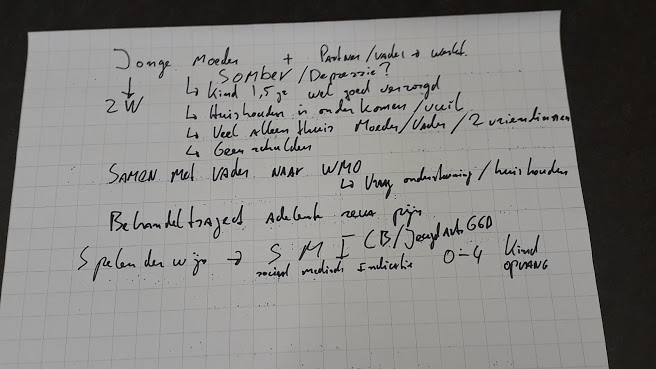 Jonge Moeder + Partner/vader → werkt
↓ ↳ SOMBER/Depressie?
2W ↳ Kind 1,5 jr wel goed verzorgd
↳ Huishouden is onderkomen/vuil
↳ Veel alleen thuis Moeder/Vader/2 vriendinnen
↳ Geen schulden
SAMEN MET VADER NAAR WMO
↳ Vraag ondersteuning/huishouden
Behandeltraject Adelante
Spelenderwijs → S M I CB/Jeugdarts GGD
sociaal medisch Indicatie 0-4 Kind
OPVANG